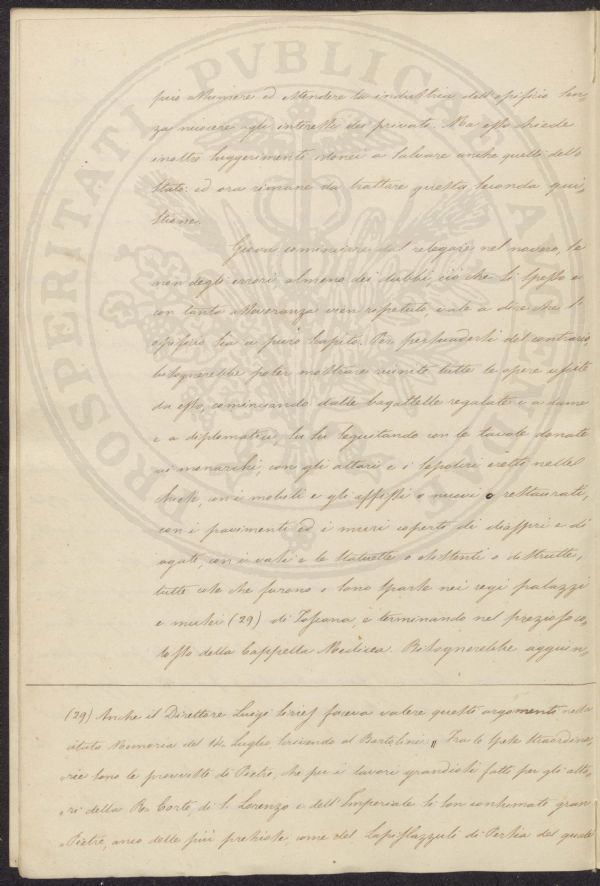 può assumere ed estendere la industria dell'opificio sen-
za nuocere agli interessi dei privati. Ma esso chiede
inoltre suggerimenti idonei a salvare anche quelli dello
Stato: ed ora rimane da trattare questa seconda qui-
stione.
Giova cominciare dal relegare nel novero, se
non degli errori, almeno dei dubbi, ciò che sì spesso e
con tanta asseveranza vien ripetuto, vale a dire che l'
opificio sia a puro scapito. Per persuadersi del contrario
bisognerebbe poter mostrare riunite tutte le opere uscite
da esso, cominciando dalle bagattelle regalate a dame
e a diplomatici, su su seguitando con le tavole donate
ai monarchi, con gli altari e i sepolcri eretti nelle
chiese, con i mobili e gli affissi o nuovi o restaurati,
con i pavimenti ed i muri coperti di diaspri e di
agate, con i vasi e le statuette o esistenti o distrutte,
tutte cose che furono o sono sparse nei regi palazzi
e musei (29) di Toscana, e terminando nel prezioso co-
losso della Cappella Medicea. Bisognerebbe aggiun-
(29) Anche il Direttore Luigi Siries faceva valere questo argomento nella
citata Memoria del 14 Luglio scrivendo al Bartolini „ Fra le spese straordina-
rie sono le provviste di Pietre, che per i lavori grandiosi fatti per gli alta-
ri della R. Corte, di S. Lorenzo e dell'Imperiale si son consumate gran
Pietre, anco delle più preziose, come del Lapislazzuli di Persia del quale
PROSPERITATI PVBLICAE AVGENDAE